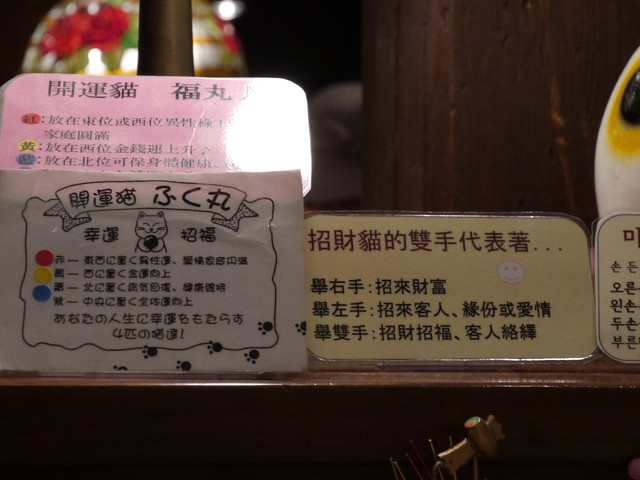 開運貓 福丸
紅：放在東位或西位異性緣
家庭圓滿
黃：放在西位金錢運上升
藍：放在北位可保身體健康、
開運猫 ふく丸
幸運 招福
赤ー東西に置く異性運、愛情家庭円満
黄ー西に置く金運向上
青ー北に置く病気回復、健康維持
紫ー中央に置く全体運向上
あなたの人生に幸運をもたらす
4匹の猫達!
招財貓的雙手代表著...
舉右手：招來財富
舉左手：招來客人、緣份或愛情
舉雙手：招財招福、客人絡繹
마
손 든
오른
왼손
두손
부른